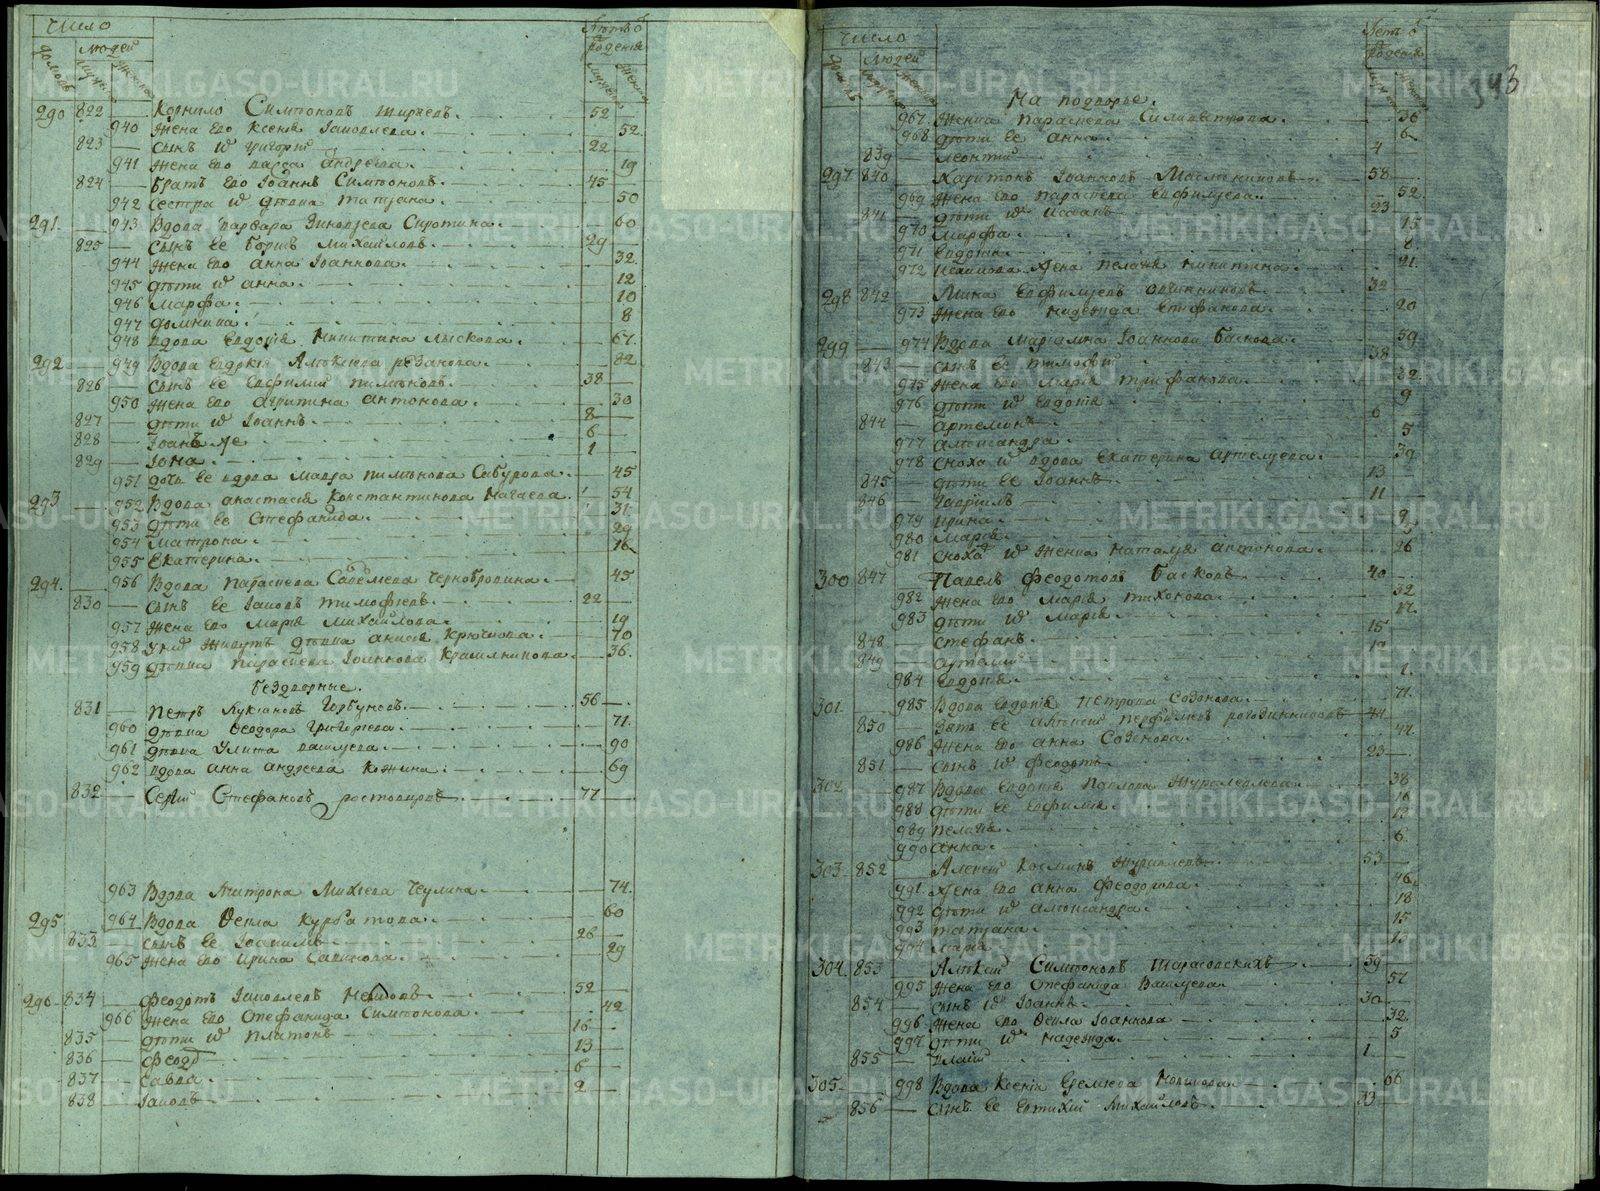 Число
домовъ
Людей
Мужска
Женска
Лѣтъ ѿ рожденія
Мужска
Женска
290 822 Корнило Симѡновъ Ширяевъ. 52
940 Жена его Ксенія Іаковлева. 52
823 Сынъ иⷯ Григорій 22
941 Жена его Васса Андреева. 19
824 Братъ его Іоаннъ Симѡновъ. 45
942 Сестра иⷯ дѣвка Татіана. 50
291 943 Вдова Варвара Зиновьева Сиротина. 60
825 Сынъ ее Борисъ Михайловъ. 29
944 Жена его Анна Іоаннова. 32
945 Дѣти иⷯ Анна. 12
946 Марфа. 10
947 Домника. 8
948 Вдова Евдокія Никитина Лыскова. 67
292 949 Вдова Евдокія Алексіева Резанова. 82
826 Сынъ ее Евфимій Пимѣновъ. 38
950 Жена его Агрипина Антонова. 30
827 Дѣти иⷯ Іоаннъ. 8
828 Іоаннъ же 6
829 Іона. 1
951 Дочь ее вдова Мавра Пимѣнова Сабурова. 45
293 952 Вдова Анастасія Константинова Нагаева. 54
953 Дѣти ее Стефанида. 31
954 Матрона. 29
955 Екатерина. 16
294 956 Вдова Параскева Савѣльева Чернобровина. 45
830 Сынъ ее Іаковъ Тимофеевъ. 22
957 Жена его Марія Михайлова. 19
958 У ниⷯ живутъ дѣвка Анисія Крючкова. 70
959 Дѣвка Параскева Іоаннова Красильникова. 36
Бездворные.
831 Петръ Лукіановъ Горбуновъ. 56
960 Дѣвка Ѳеодора Григорьева. 71
961 Дѣвка Улита Васильева. 90
962 Вдова Анна Андреева Кожина. 69
832 Сергій Стефановъ Ростовцовъ 77
963 Вдова Матрона Михѣева Чеулина. 74
295 964 Вдова Ѳекла Курбатова. 60
833 Сынъ ее Іоакимъ 26
965 Жена его Ирина Савинова. 29
296 834 Феодотъ Іаковлевъ 52
966 Жена его Стефанида Симѡнова. 42
835 Дѣти иⷯ Платонъ 16
836 Феодоръ 13
837 Савва. 6
838 Іаковъ 2
Число
Людей
Лѣтъ ѿ рожденія
343
На подворье.
967 Женка Параскева Силивестрова. 36
968 Дѣти ее Анна. 6
839 Леонтій 4
297 840 Харитонъ Іоанновъ Масленниковъ 58
969 Жена его Параскева Евфимьева. 52
841 Дѣти иⷯ 23
970 Марфа. 15
971 Евдокія. 8
972 жена Пелагія Никитина. 21
298 842 Мина Евфимьевъ Овчинниковъ. 32
973 Жена его Надежда Епифанова. 20
299 974 Вдова Маріамна Іоаннова Баскова. 59
843 Сынъ ее Тимофей 38
975 Жена его Марія Трифанова. 32
976 Дѣти иⷯ Евдокія 9
844 Артемонъ. 6
977 Александра. 5
978 Сноха иⷯ вдова Екатерина Артемьева. 39
845 Дѣти ее Іоаннъ. 13
846 Гавріилъ 11
979 Ирина. 9
980 Марія.
981 Сноха иⷯ женка Наталья Антонова. 26
300 847 Павелъ Феодотовъ Басковъ 40
982 Жена его Марія Тихонова. 32
983 Дѣти иⷯ Марія. 17
848 Стефанъ. 15
849 Артемій
984 Евдокія. 1
301 985 Вдова Евдокія Петрова Созонова. 71
850 Зять ее Алексій Перфильевъ 44
986 Жена его Анна Созонова. 44
851 Сынъ иⷯ Феодотъ 23
302 987 Вдова Евдокія Павлова Журавлева. 38
988 Дѣти ее Евфимія. 16
989 Пелагія. 13
990 Анна. 6
303 852 Алексій Космінъ Журавлевъ. 53
991 Жена его Анна Феодорова. 46
992 Дѣти иⷯ Александра. 18
993 Татіана. 15
994 Марія
304 853 Алексій Симѡновъ Тарасовскихъ 59
995 Жена его Стефанида Васильева. 57
854 Сынъ иⷯ Іоаннъ. 30
996 Жена его Ѳекла Іоаннова 32
997 Дѣти иⷯ Надежда. 5
855 1
305 998 Вдова Ксенія Еремѣева 66
856 Сынъ ее Евтихій Михайловъ. 33
METRIKI.GASO-URAL.RU